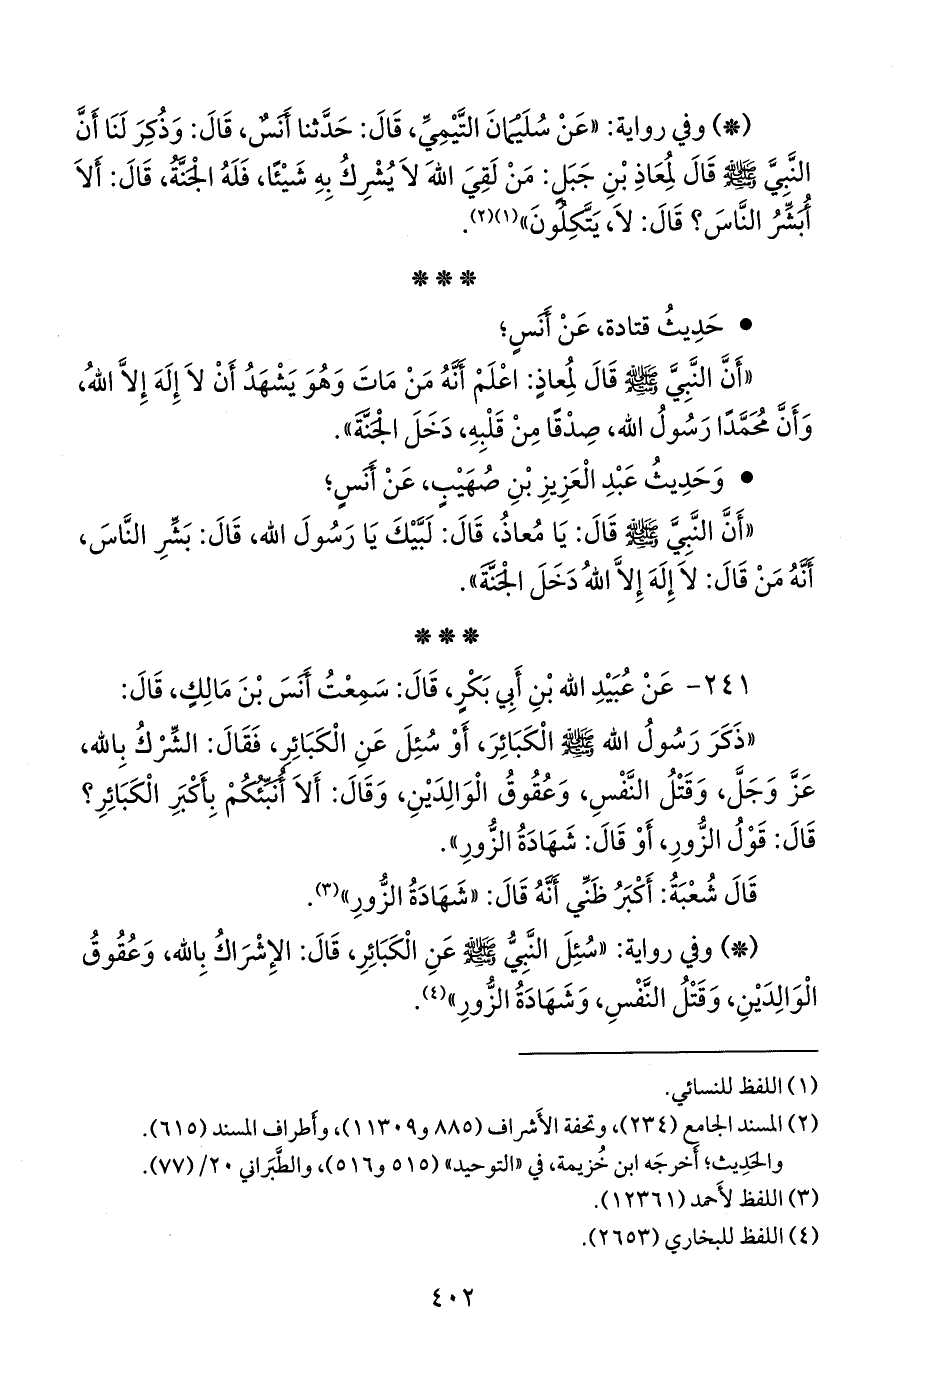 (*) وفي رواية: «عَنْ سُلَيْمَانَ التَّيْمِيِّ، قَالَ: حَدَّثنا أَنَسٌ، قَالَ: وَذُكِرَ لَنَا أَنَّ
النَّبِيَّ ﷺ قَالَ لِمُعَاذِ بْنِ جَبَلٍ: مَنْ لَقِيَ اللهَ لاَ يُشْرِكُ بِهِ شَيْئًا، فَلَهُ الْجَنَّةُ، قَالَ: أَلاَ
أُبَشِّرُ النَّاسَ؟ قَالَ: لاَ، يَتَّكِلُونَ»(١)(٢).
* * *
• حَدِيثُ قتادة، عَنْ أَنَسٍ؛
«أَنَّ النَّبِيَّ ﷺ قَالَ لِمُعاذٍ: اعْلَمْ أَنَّهُ مَنْ مَاتَ وَهُوَ يَشْهَدُ أَنْ لاَ إِلَهَ إِلاَّ اللهُ،
وَأَنَّ مُحَمَّدًا رَسُولُ الله، صِدْقًا مِنْ قَلْبِهِ، دَخَلَ الْجَنَّةَ».
• وَحَدِيثُ عَبْدِ الْعَزِيزِ بْنِ صُهَيْبٍ، عَنْ أَنَسٍ؛
«أَنَّ النَّبِيَّ ﷺ قَالَ: يَا مُعاذُ، قَالَ: لَبَّيْكَ يَا رَسُولَ الله، قَالَ: بَشِّرِ النَّاسَ،
أَنَّهُ مَنْ قَالَ: لاَ إِلَهَ إِلاَّ اللهُ دَخَلَ الْجَنَّةَ».
* * *
٢٤١- عَنْ عُبَيْدِ الله بْنِ أَبِي بَكْرٍ، قَالَ: سَمِعْتُ أَنَسَ بْنَ مَالِكٍ، قَالَ:
«ذَكَرَ رَسُولُ الله ﷺ الْكَبَائِرَ، أَوْ سُئِلَ عَنِ الْكَبَائِرِ، فَقَالَ: الشِّرْكُ بِالله،
عَزَّ وَجَلَّ، وَقَتْلُ النَّفْسِ، وَعُقُوقُ الْوَالِدَيْنِ، وَقَالَ: أَلاَ أُنَبِّئُكُمْ بِأَكْبَرِ الْكَبَائِرِ؟
قَالَ: قَوْلُ الزُّورِ، أَوْ قَالَ: شَهَادَةُ الزُّورِ».
قَالَ شُعْبَةُ: أَكْبَرُ ظَنِّي أَنَّهُ قَالَ: «شَهَادَةُ الزُّورِ»(٣).
(*) وفي رواية: «سُئِلَ النَّبِيُّ ﷺ عَنِ الْكَبَائِرِ، قَالَ: الإِشْرَاكُ بِالله، وَعُقُوقُ
الْوَالِدَيْنِ، وَقَتْلُ النَّفْسِ، وَشَهَادَةُ الزُّورِ»(٤).
(١) اللفظ للنسائي.
(٢) المسند الجامع (٢٣٤)، وتحفة الأَشراف (٨٨٥ و١١٣٠٩)، وأَطراف المسند (٦١٥).
والحَدِيث؛ أَخرجَه ابن خُزيمة، في «التوحيد» (٥١٥ و٥١٦)، والطَّبَراني ٢٠/ (٧٧).
(٣) اللفظ لأَحمد (١٢٣٦١).
(٤) اللفظ للبخاري (٢٦٥٣).
٤٠٢